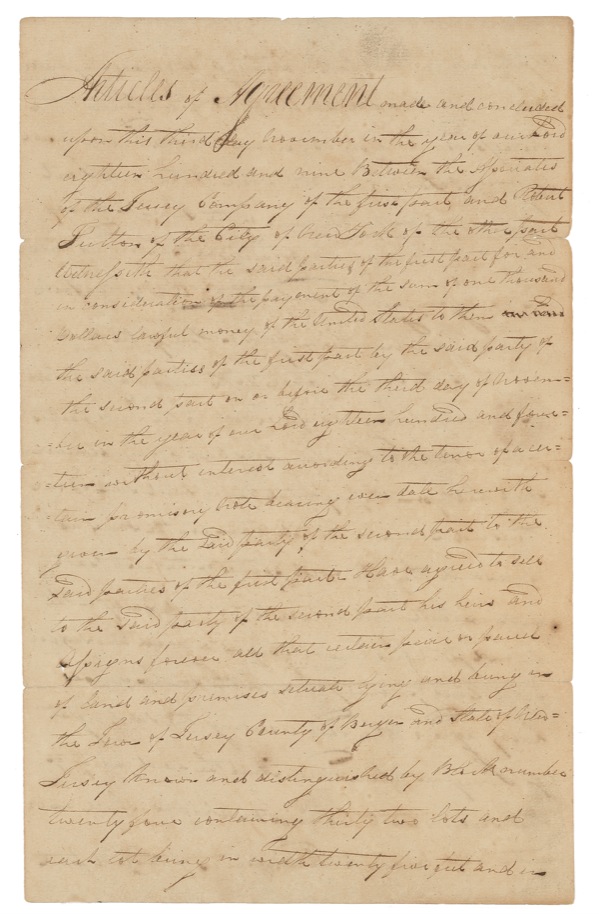 Articles of Agreement made and concluded
upon this third day November in the year of our Lord
eighteen hundred and nine Between the Associates
of the Jersey Company of the first part, and Robert
of the City of New York of the other part
Witnesseth that the said parties of the first part for and
in consideration of the payment of the sum of one thousand
Dollars lawful money of the United States to them
the said parties of the first part by the said party of
the second part on or before the third day of Novem=
=ber in the year of our Lord eighteen hundred and four=
=teen without interest according to the tenor of a cer=
=tain promisory Note bearing even date herewith
given by the Said party of the second part to the
Said parties of the first part Have agreed to sell
to the Said party of the second part his heirs and
Assigns forever all that certain peice or parcel
of land and premises situate lying and being in
the Town of Jersey County of Bergen and State of New=
Jersey known and distinguished by Block number
twenty four containing thirty two Lots and
each Lot being in width twenty five feet and in